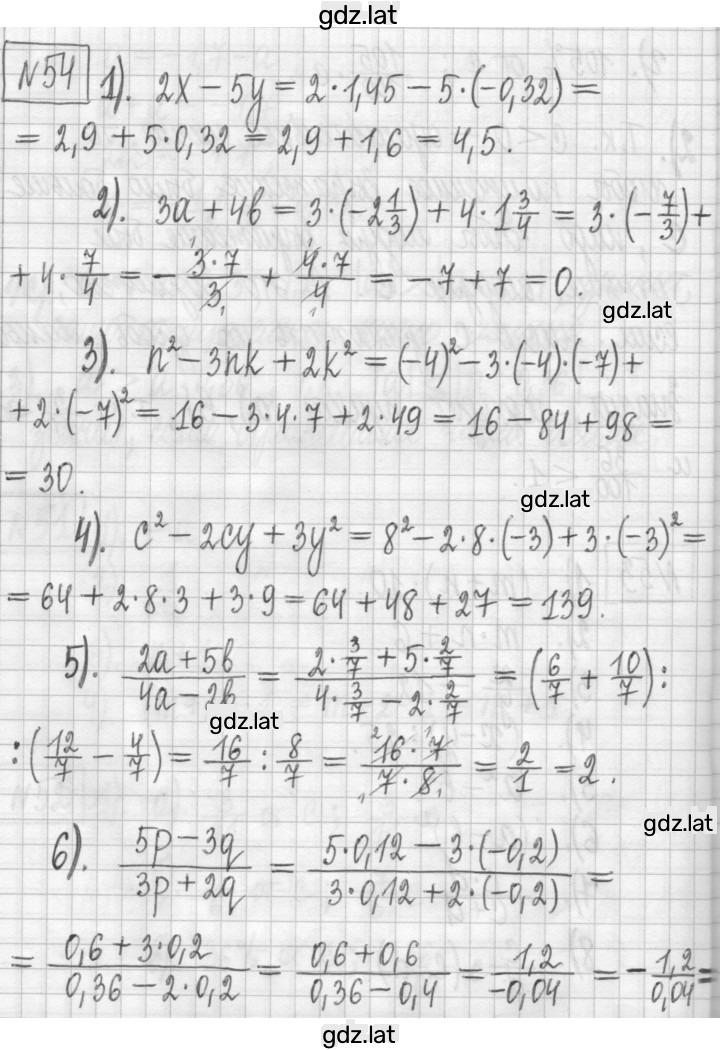 gdz.lat
№54 1). 2x - 5y = 2·1,45 - 5·(-0,32) =
= 2,9 + 5·0,32 = 2,9 + 1,6 = 4,5.
2). 3a + 4b = 3·(-2 1/3) + 4·1 3/4 = 3·(-7/3) +
+ 4·7/4 = - 3·7/3 + 4·7/4 = -7 + 7 = 0.
gdz.lat
3). n² - 3nk + 2k² = (-4)² - 3·(-4)·(-7) +
+ 2·(-7)² = 16 - 3·4·7 + 2·49 = 16 - 84 + 98 =
= 30.
gdz.lat
4). c² - 2cy + 3y² = 8² - 2·8·(-3) + 3·(-3)² =
= 64 + 2·8·3 + 3·9 = 64 + 48 + 27 = 139.
5). (2a + 5b)/(4a - 2b) = (2·3/7 + 5·2/7)/(4·3/7 - 2·2/7) = (6/7 + 10/7) :
gdz.lat
: (12/7 - 4/7) = 16/7 : 8/7 = 16·7/7·8 = 2/1 = 2.
gdz.lat
6). (5p - 3q)/(3p + 2q) = (5·0,12 - 3·(-0,2))/(3·0,12 + 2·(-0,2)) =
= (0,6 + 3·0,2)/(0,36 - 2·0,2) = (0,6 + 0,6)/(0,36 - 0,4) = 1,2/-0,04 = - 1,2/0,04 =
gdz.lat